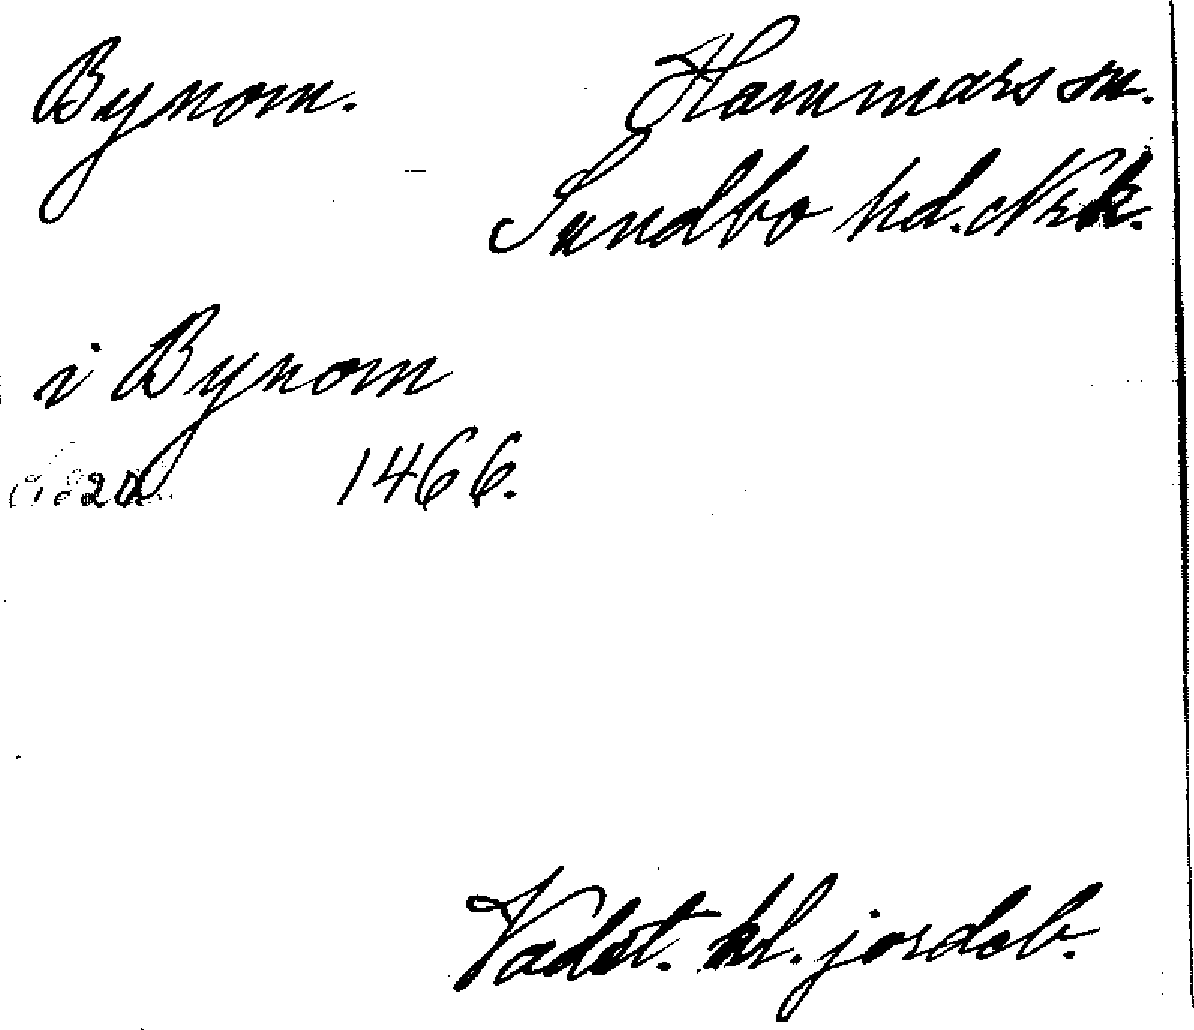 Bynom. Hammars sn.
Sundbo hd. Nrk.
i Bynom
1466.
Vadst. kl. jordeb.